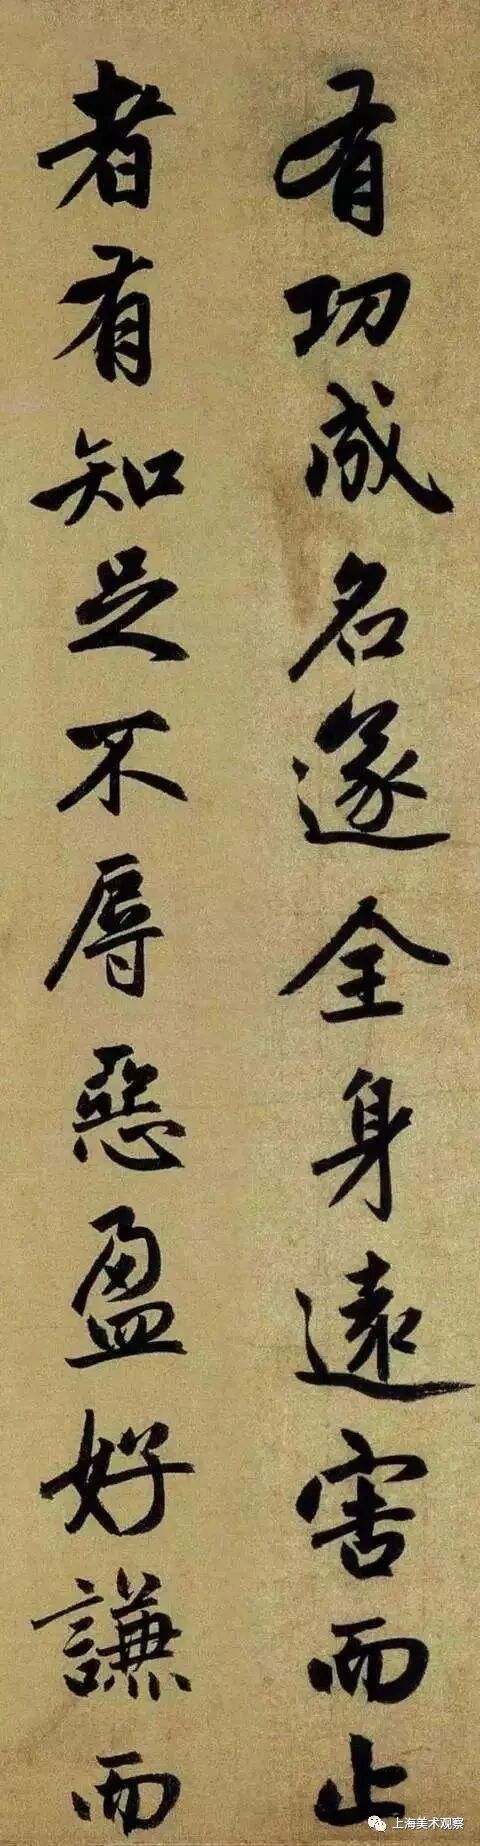 有功成名遂全身遠害而止
者有知足不辱惡盈好謙而
上海美术观察